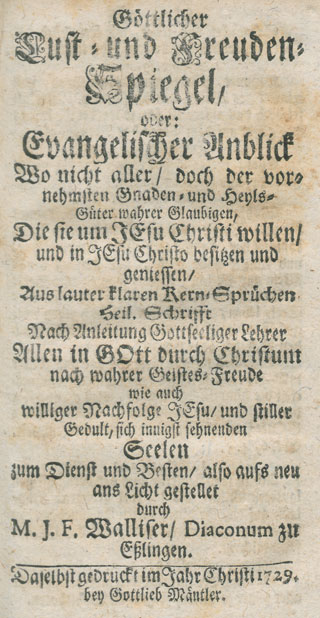 Göttlicher
Lust- und Freuden-
Spiegel/
oder:
Evangelischer Anblick
Wo nicht aller/ doch der vor-
nehmsten Gnaden- und Heyls-
Güter wahrer Glaubigen,
Die sie um JEsu Christi willen/
und in JEsu Christo besitzen und
geniessen/
Aus lauter klaren Kern-Sprüchen
Heil. Schrifft
Nach Anleitung Gottseeliger Lehrer
Allen in GOtt durch Christum
nach wahrer Geistes-Freude
wie auch
williger Nachfolge JEsu/ und stiller
Gedult, sich innigst sehnenden
Seelen
zum Dienst und Besten/ also aufs neu
ans Licht gestellet
durch
M. J. F. Walliser/ Diaconum zu
Eßlingen.
Daselbst gedruckt im Jahr Christi 1729.
bey Gottlieb Mäntler.